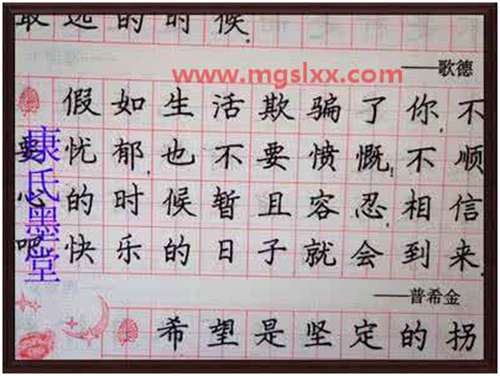 远的时候.
www.mgslxx.com
——歌德
假如生活欺骗了你,不
要忧郁,也不要愤慨,不顺
心的时候暂且容忍,相信
吧,快乐的日子就会到来.
——普希金
希望是坚定的拐
康氏墨堂